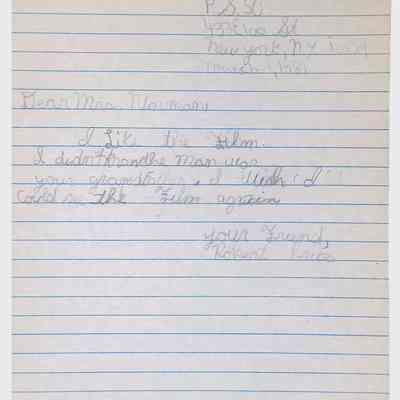 P.S. 50
St
New York, N.Y.
March 1, 1981
Dear Mrs. Norman,
I Like the Film.
I didn't the man was
your grandfather. I wish I
could see the Film again
your Friend,
Robert